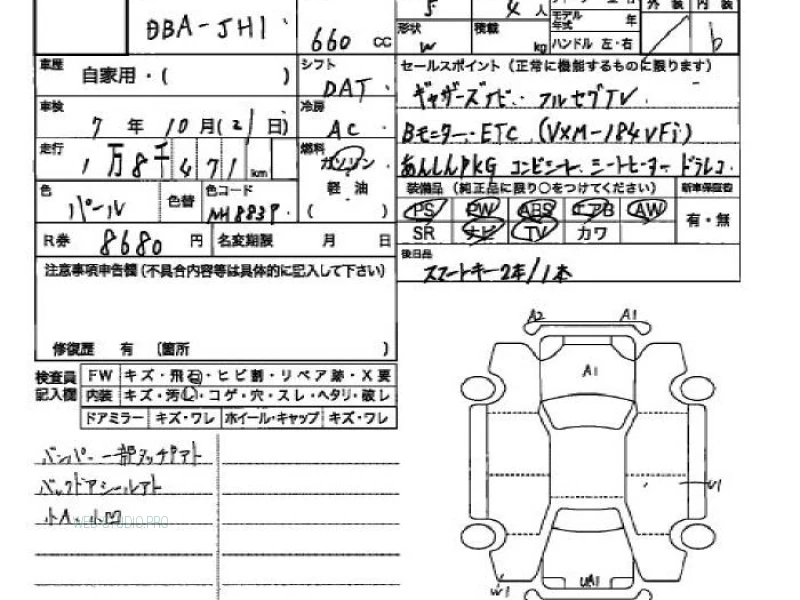 5 4人
外装 内装
DBA-JH1
660 cc
形状 W
積載 kg
モデル年式 年
ハンドル 左・右
b
車歴 自家用・( )
シフト DAT
セールスポイント (正常に機能するものに限ります)
ギャザーズナビ・フルセグTV
車検 7年10月(21日)
冷房 AC
Bモニター・ETC (VXM-184VFi)
走行 1万8千471km
燃料 ガソリン
軽油
( )
あんしんPKG コンビシート シートヒーター ドラレコ
色 パール
色替
色コード NH883P
装備品 (純正品に限り○をつけてください) 新車保証書
PS PW ABS エアB AW
有・無
SR ナビ TV カワ
R券 8680円
名変期限 月 日
後日品
スマートキー2本/1本
注意事項申告欄(不具合内容等は具体的に記入して下さい)
修復歴 有 (箇所 )
検査員記入欄
FW キズ・飛石・ヒビ割・リペア跡・X要
内装 キズ・汚し・コゲ・穴・スレ・ヘタリ・破レ
ドアミラー キズ・ワレ ホイール・キャップ キズ・ワレ
バンパー一部タッチアト
バックドアシールアト
小A・小凹
WEB-STUDIO.PRO
A2 A1
A1
U1
W1
UA1